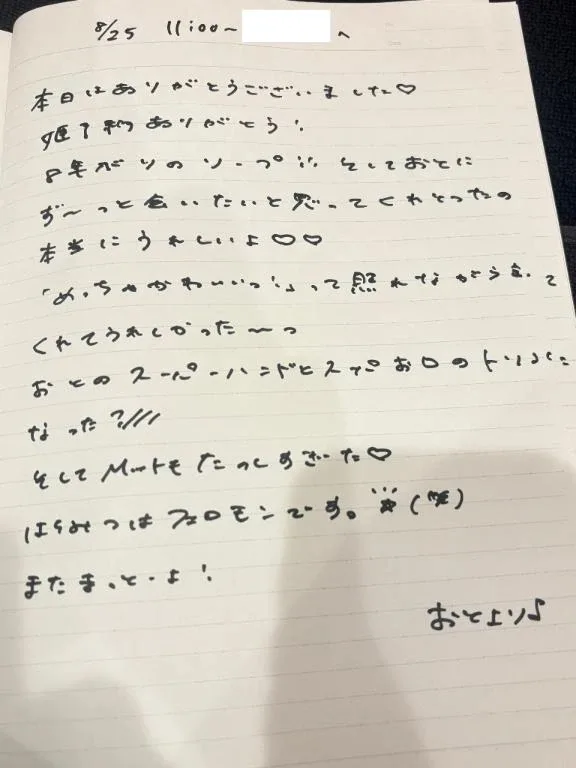 8/25 11:00〜 へ
本日はありがとうございました♡
姫予約ありがとう!
8年ぶりのソープが、そしておとに
ず〜っと会いたいと思ってくれとったの
本当にうれしいよ♡♡
「めっちゃかわいいっ!」って照れながら言って
くれてうれしかった〜っ
おとのスーパーハンドとスーパーお口のトリコに
なった?///
そしてマットもたのしめさいた♡
はちみつはフェロモンです。(笑)
またまっとーよ!
おとより♪